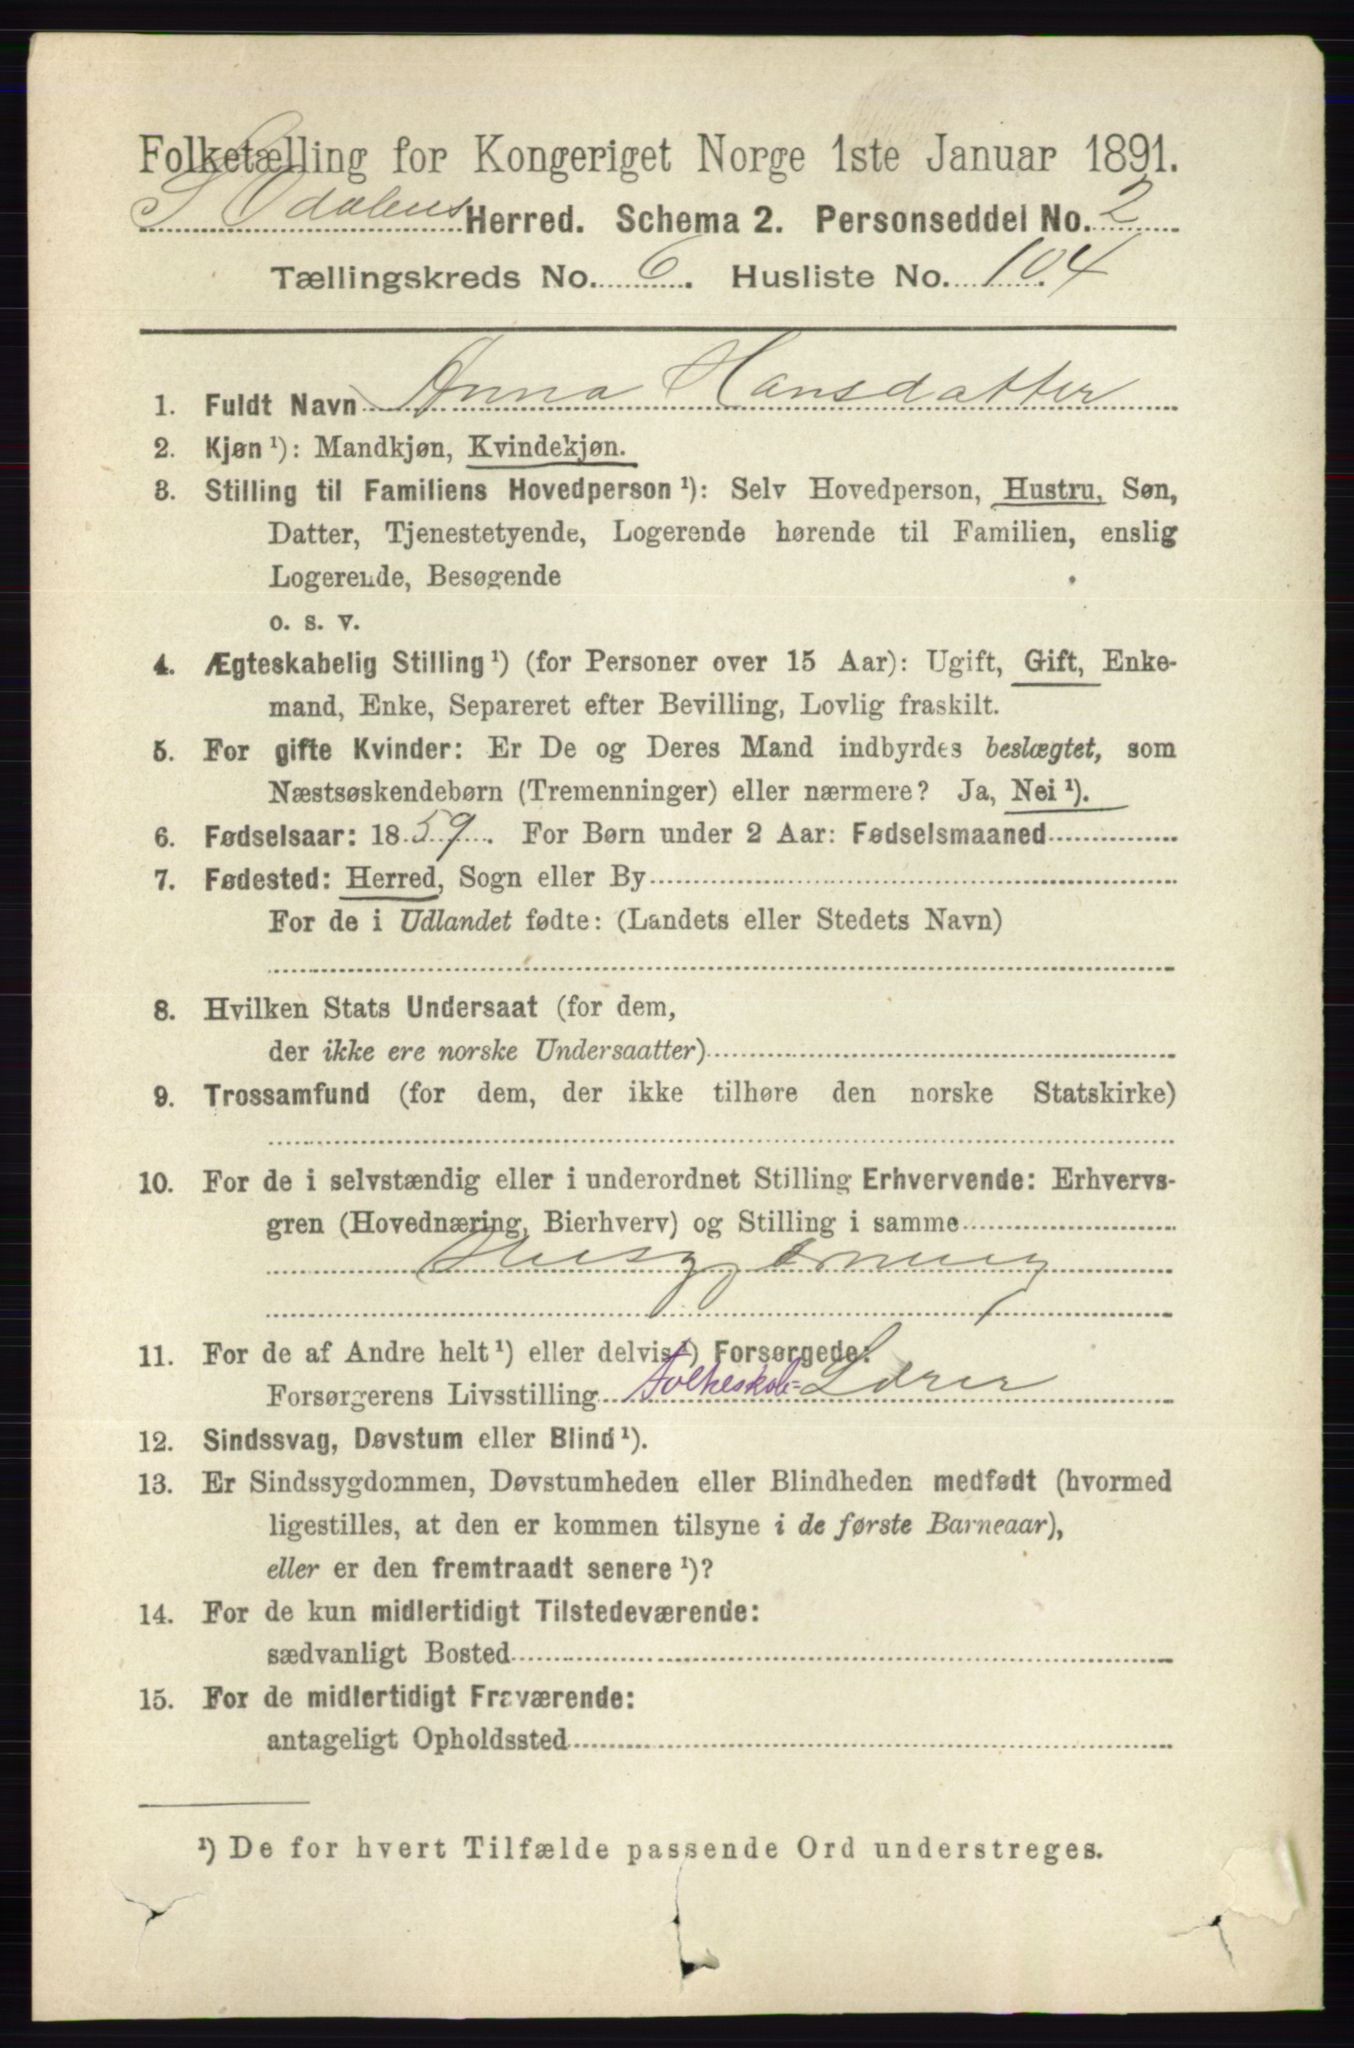 Folketælling for Kongeriget Norge 1ste Januar 1891.
S. Odalens Herred. Schema 2. Personseddel No. 2
Tællingskreds No. 6. Husliste No. 104
1. Fuldt Navn Anna Hansdatter
2. Kjøn¹): Mandkjøn, Kvindekjøn.
3. Stilling til Familiens Hovedperson¹): Selv Hovedperson, Hustru, Søn,
Datter, Tjenestetyende, Logerende hørende til Familien, enslig
Logerende, Besøgende
o. s. v.
4. Ægteskabelig Stilling¹) (for Personer over 15 Aar): Ugift, Gift, Enke-
mand, Enke, Separeret efter Bevilling, Lovlig fraskilt.
5. For gifte Kvinder: Er De og Deres Mand indbyrdes beslægtet, som
Næstsøskendebørn (Tremenninger) eller nærmere? Ja, Nei¹).
6. Fødselsaar: 1859. For Børn under 2 Aar: Fødselsmaaned
7. Fødested: Herred, Sogn eller By
For de i Udlandet fødte: (Landets eller Stedets Navn)
8. Hvilken Stats Undersaat (for dem,
der ikke ere norske Undersaatter)
9. Trossamfund (for dem, der ikke tilhøre den norske Statskirke)
10. For de i selvstændig eller i underordnet Stilling Erhvervende: Erhvervs-
gren (Hovednæring, Bierhverv) og Stilling i samme
Husgjerning
11. For de af Andre helt¹) eller delvis¹) Forsørgede:
Forsørgerens Livsstilling Folkeskole= Lærer
12. Sindssvag, Døvstum eller Blind¹).
13. Er Sindssygdommen, Døvstumheden eller Blindheden medfødt (hvormed
ligestilles, at den er kommen tilsyne i de første Barneaar),
eller er den fremtraadt senere¹)?
14. For de kun midlertidigt Tilstedeværende:
sædvanligt Bosted
15. For de midlertidigt Fraværende:
antageligt Opholdssted
¹) De for hvert Tilfælde passende Ord understreges.